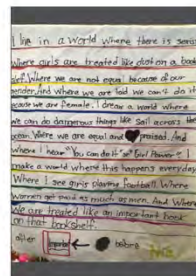 I live in a world where there is
Where girls are treated like dust on a book
shelf. Where we are not equal because of our
gender. And where we are told we can't do it
because we are female. I dream a world where
we can do dangerous things like sail across the
ocean. Where we are equal and praised. And
where I hear "You can do it" or "Girl Power". I
make a world where this happens everyday.
Where I see girls playing football. Where
Women get paid as much as men. And Where
We are treated like an important book
on that bookshelf.
after important ← before